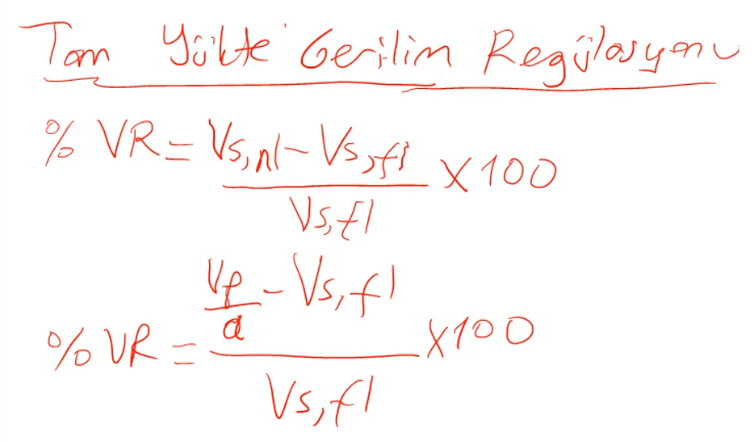 Tam Yükte Gerilim Regülasyonu
% VR = Vs,nl - Vs,fl / Vs,fl x 100
% VR = Vp/a - Vs,fl / Vs,fl x 100